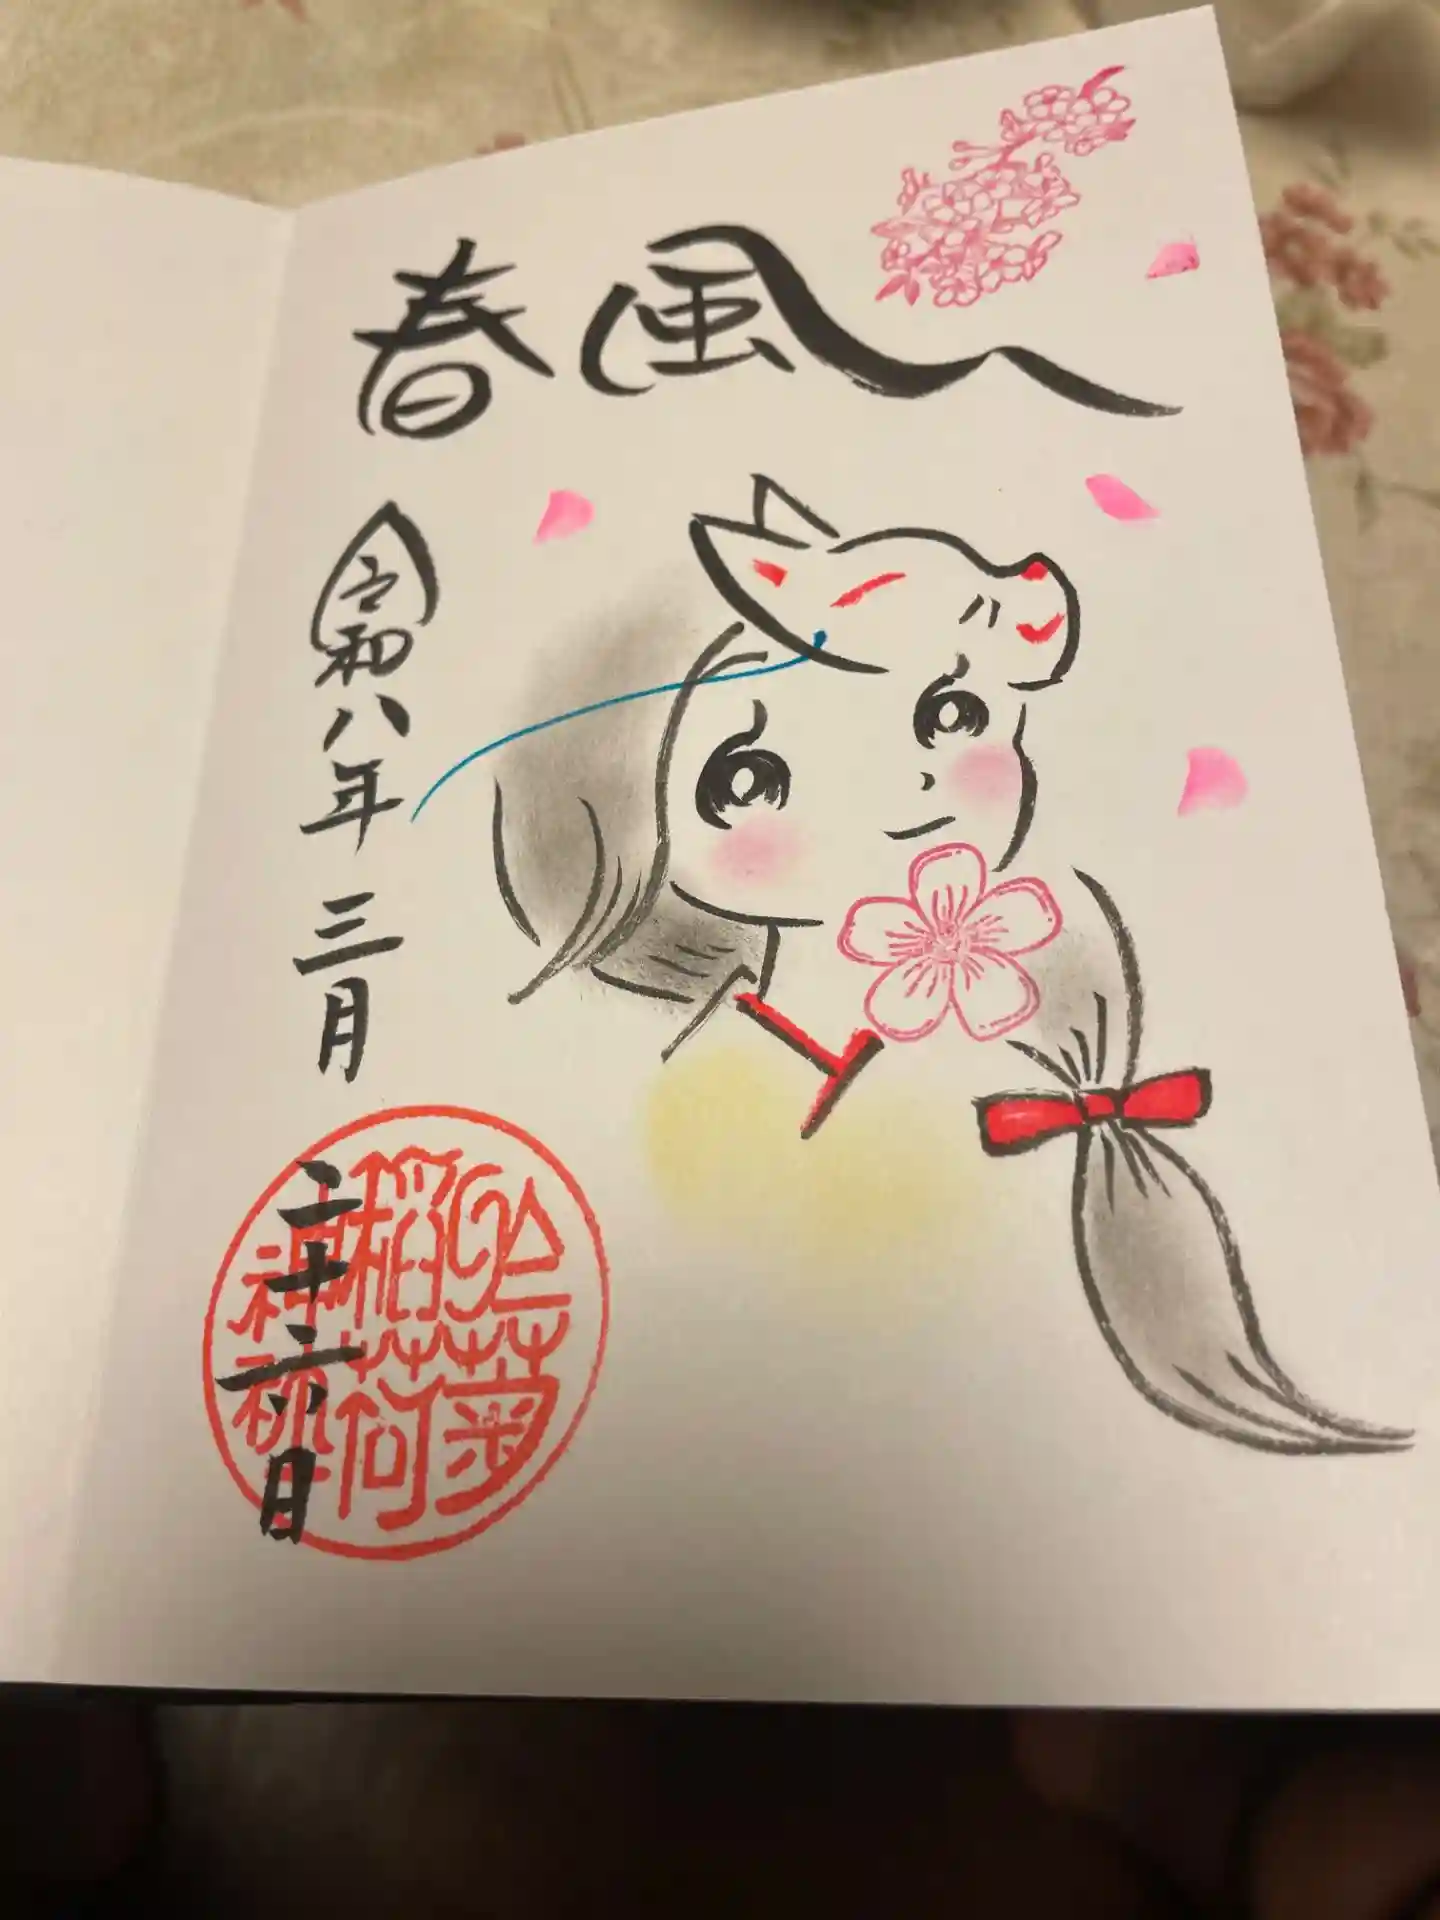 春風
令和八年 三月 二十六日
於菊
稲荷
神社